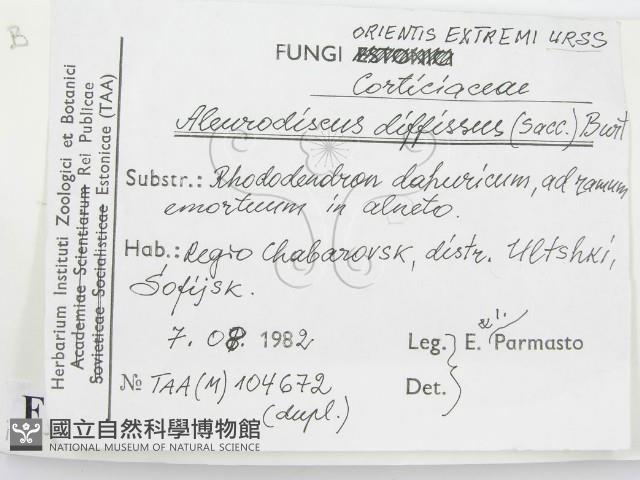 B
ORIENTIS EXTREMI URSS
FUNGI ESTONICI
Corticiaceae
Aleurodiscus diffissus (Sacc.) Burt
Substr.: Rhododendron dahuricum, ad ramum
emortuum in alneto.
Hab.: Regio Chabarovsk, distr. Ultshki,
Sofijsk.
7. 08. 1982
Leg. E. & I. Parmasto
Det.
№ TAA(M) 104672
(dupl.)
Herbarium Instituti Zoologici et Botanici
Academiae Scientiarum Rei Publicae
Sovieticae Socialisticae Estonicae (TAA)
F
國立自然科學博物館
NATIONAL MUSEUM OF NATURAL SCIENCE